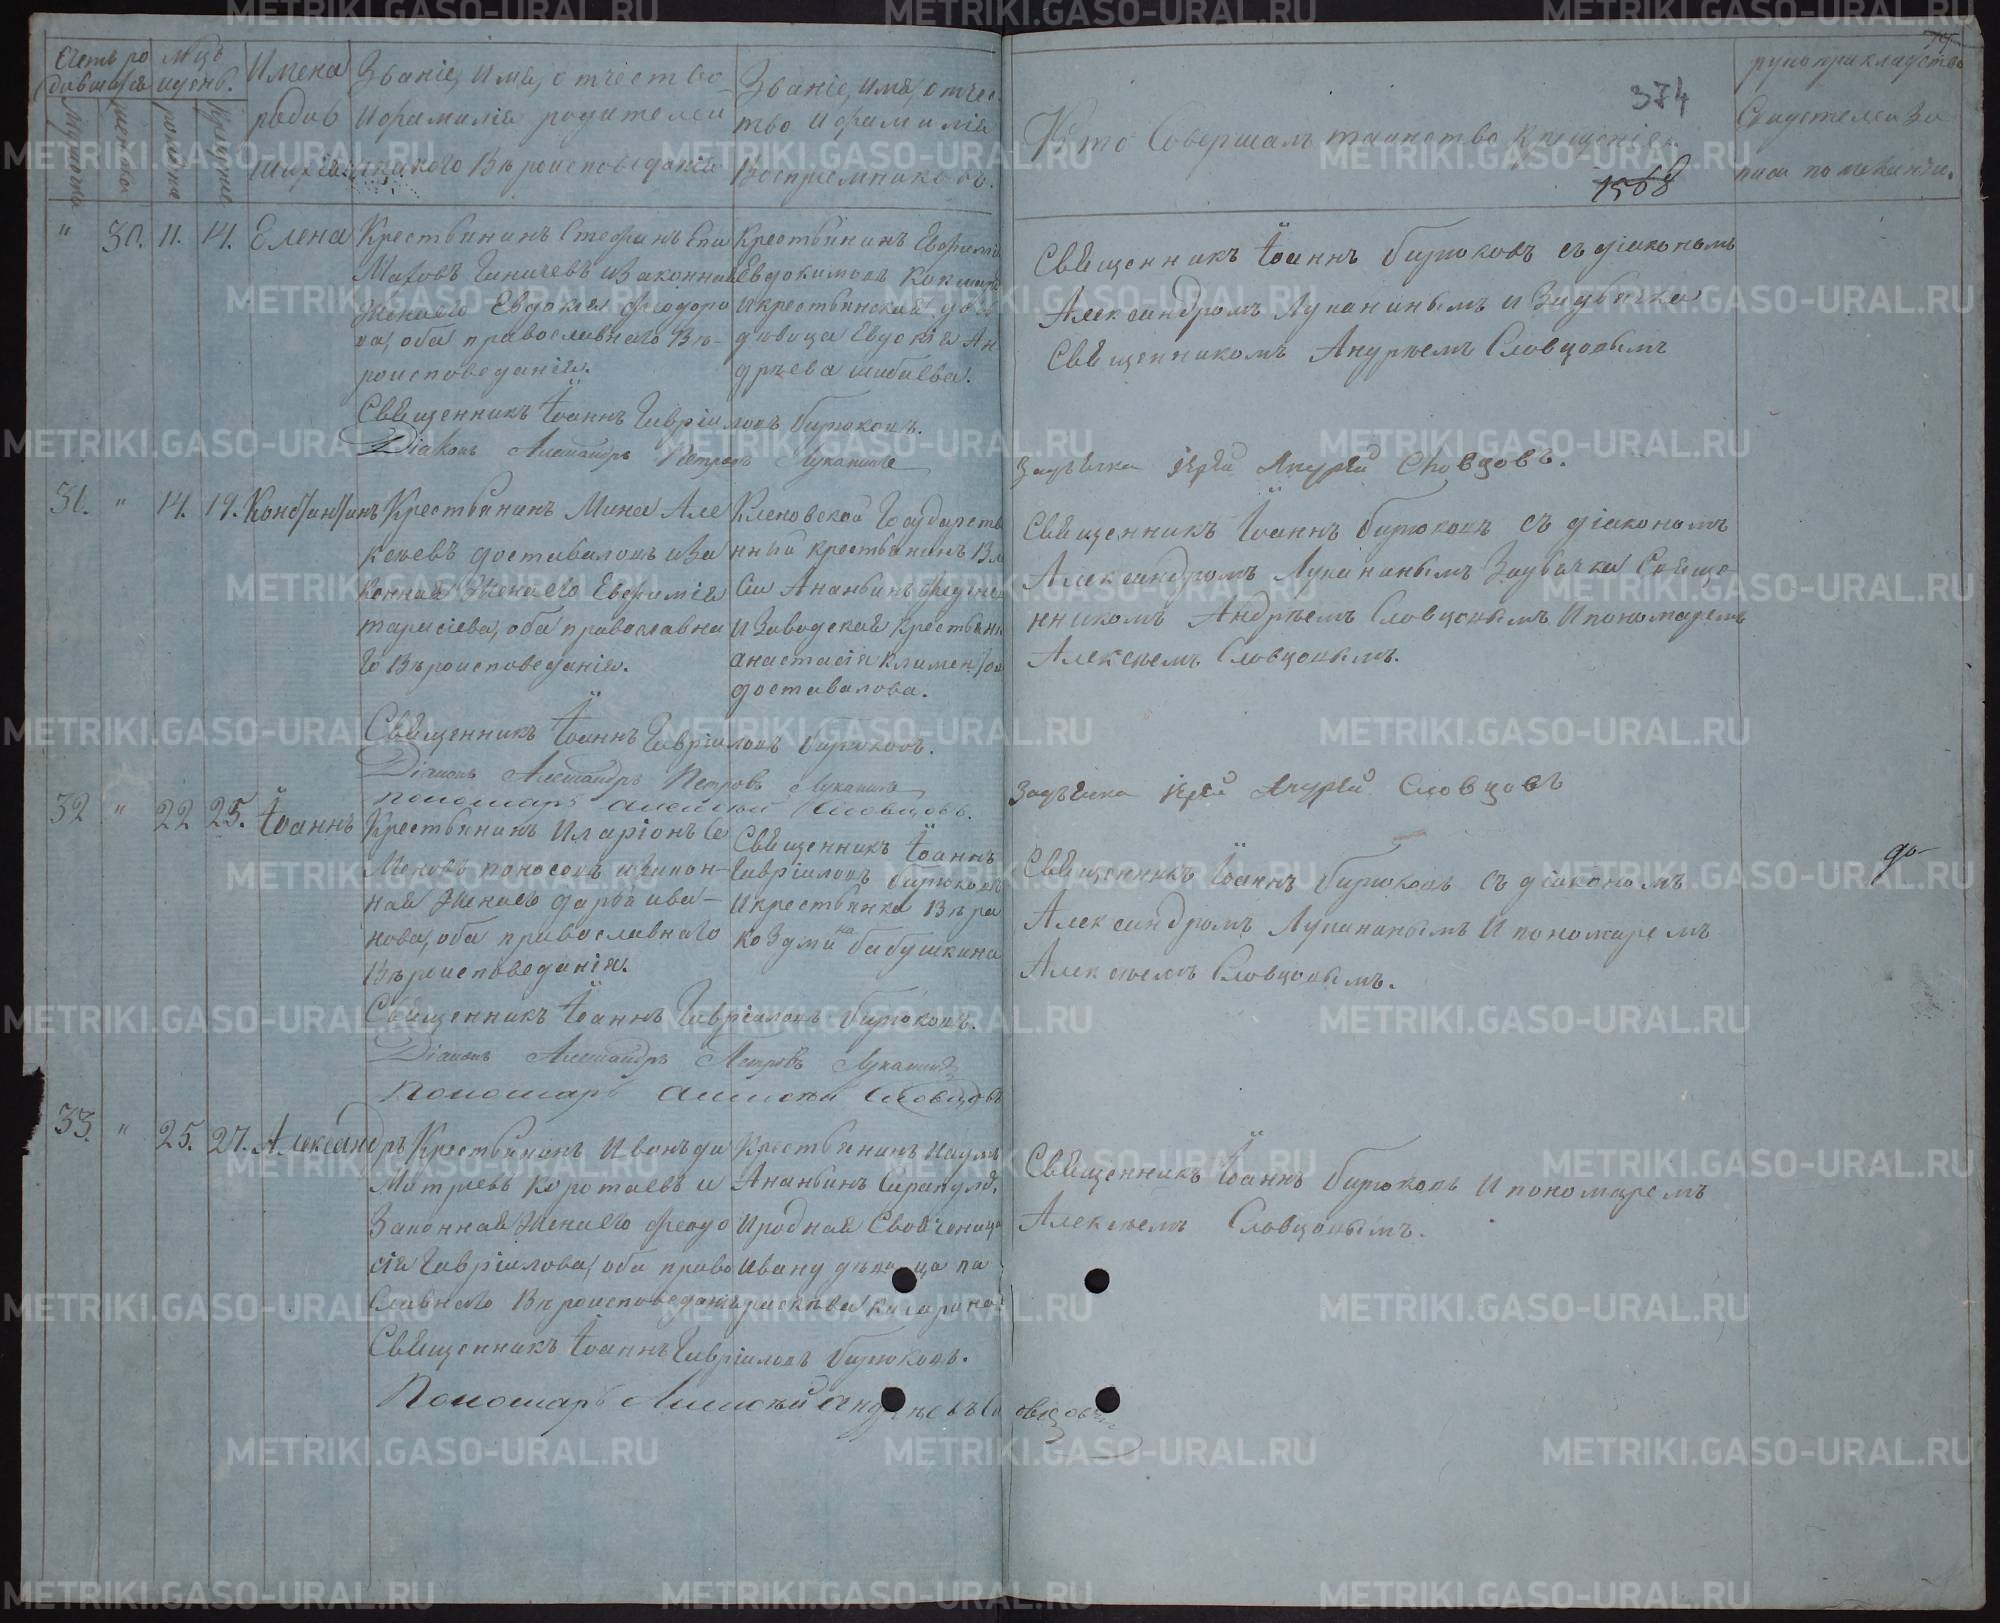 Счетъ ро
дившихся
Мѣсяцъ
и день.
Имена
родив
шихся
Званіе, имя, отчество
и фамилія родителей
и какого Вѣроисповѣданія
Званіе, имя, отчес
тво и фамилія
Воспріемниковъ.
Мужеска
Женска
рожденія
Крещенія
374
1568
Кто Совершалъ таинство крещенія.
рукоприкладство
Свидетелей За
писи по желанію.
" 30. 11. 14. Елена
Крестьянинъ Стефанъ Епи
маховъ и Законная
Жена его Евдокія Феодоро
ва, оба православнаго Вѣ-
роисповеданія.
Крестьянинъ Евфимій
Евдокимовъ
и крестьянская
дѣвица Евдокія Ан
дрѣева
Священникъ Іоаннъ Бирюковъ съ діакономъ
Александромъ Луканинымъ и Заубылка
Священникомъ Андрѣемъ Словцовымъ
Священникъ Іоаннъ Гавріиловъ Бирюковъ.
Діаконъ Александръ Петровъ Луканинъ
іерей Андрей Словцовъ.
31. " 14. 19. Константинъ
Крестьянинъ Мина Але
ксѣевъ Доставаловъ и За
конная Жена его Евфимія
Тарасіева, оба православна
го Вѣроисповеданія.
Кленовской Государств
нный крестьянинъ Вла
сій Ананьинъ
и Заводская крестьянк
Анастасія Климентов
Доставалова.
Священникъ Іоаннъ Бирюковъ съ діакономъ
Александромъ Луканинымъ Свяще
нникомъ Андрѣемъ Словцовымъ и пономаремъ
Алексѣемъ Словцовымъ.
Священникъ Іоаннъ Гавріиловъ Бирюковъ.
Діаконъ Александръ Петровъ Луканинъ
Пономарь Алексѣй Словцовъ.
іерей Андрей Словцовъ
32 " 22 25. Іоаннъ
Крестьянинъ Иларіонъ Се
меновъ Поносовъ и Закон-
ная Жена его Дарья Ива-
нова, оба православнаго
Вѣроисповеданія.
Священникъ Іоаннъ
Гавріиловъ Бирюковъ
и крестьянка Вѣра
Коздмина Бабушкина
Священникъ Іоаннъ Бирюковъ съ діакономъ
Александромъ Луканинымъ и пономаремъ
Алексѣемъ Словцовымъ.
Священникъ Іоаннъ Гавріиловъ Бирюковъ.
Діаконъ Александръ Петровъ Луканинъ
Пономарь Алексѣй Словцовъ
33. " 25. 27. Александръ
Крестьянинъ Иванъ Ди
митріевъ Коротаевъ и
Законная Жена его Феодо
сія Гавріилова, оба право
славнаго Вѣроисповеданія
Крестьянинъ Наумъ
Ананьинъ
и родная Своячиница
Ивану дѣвица Па
раскѣва
Священникъ Іоаннъ Бирюковъ и пономаремъ
Алексѣемъ Словцовымъ.
Священникъ Іоаннъ Гавріиловъ Бирюковъ.
Пономарь Алексѣй Андрѣевъ Словцовъ
METRIKI.GASO-URAL.RU